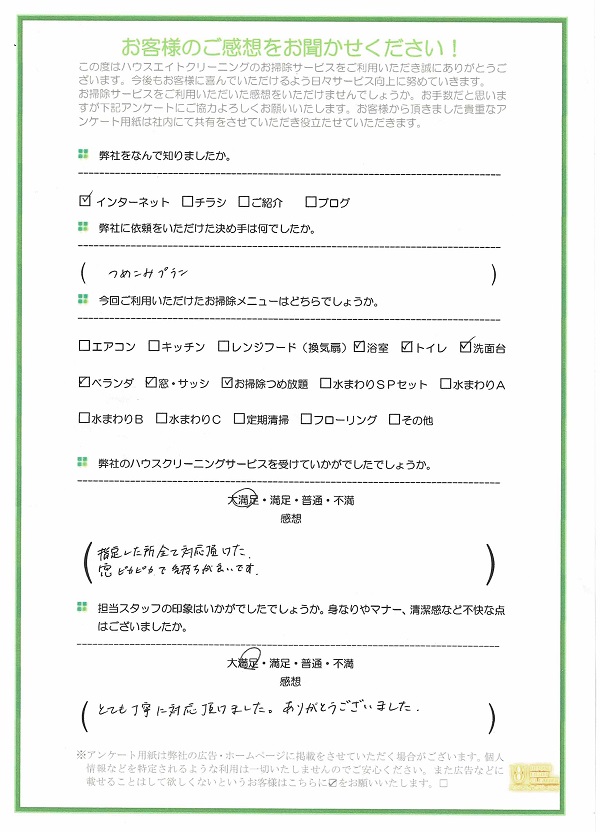 お客様のご感想をお聞かせください！
この度はハウスエイトクリーニングのお掃除サービスをご利用いただき誠にありがとうご
ざいます。今後もお客様に喜んでいただけるよう日々サービス向上に努めていきます。
お掃除サービスをご利用いただいた感想をいただけませんでしょうか。お手数だと思いま
すが下記アンケートにご協力よろしくお願いいたします。お客様から頂きました貴重なア
ンケート用紙は社内にて共有をさせていただき役立たせていただきます。
弊社をなんで知りましたか。
☑インターネット □チラシ □ご紹介 □ブログ
弊社に依頼をいただけた決め手は何でしたか。
( つめこみプラン )
今回ご利用いただけたお掃除メニューはどちらでしょうか。
□エアコン □キッチン □レンジフード（換気扇）☑浴室 ☑トイレ ☑洗面台
☑ベランダ ☑窓・サッシ ☑お掃除つめ放題 □水まわりＳＰセット □水まわりＡ
□水まわりＢ □水まわりＣ □定期清掃 □フローリング □その他
弊社のハウスクリーニングサービスを受けていかがでしたでしょうか。
大満足・満足・普通・不満
感想
( 指定した所全て対応頂けた.
窓ピカピカで気持ちがいいです. )
担当スタッフの印象はいかがでしたでしょうか。身なりやマナー、清潔感など不快な点
はございましたか。
大満足・満足・普通・不満
感想
( とても丁寧に対応頂けました。ありがとうございました. )
※アンケート用紙は弊社の広告・ホームページに掲載をさせていただく場合がございます。個人
情報などを特定されるような利用は一切いたしませんのでご安心ください。また広告などに
載せることはして欲しくないというお客様はこちらに☑をお願いいたします。□